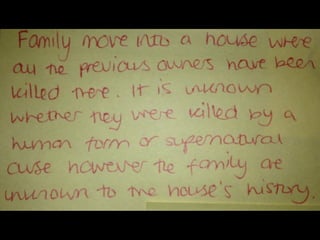 Family move into a house where
all the previous owners have been
killed there. It is unknown
whether they were killed by a
human form or supernatural
cuase however the family are
unknown to the house's history.